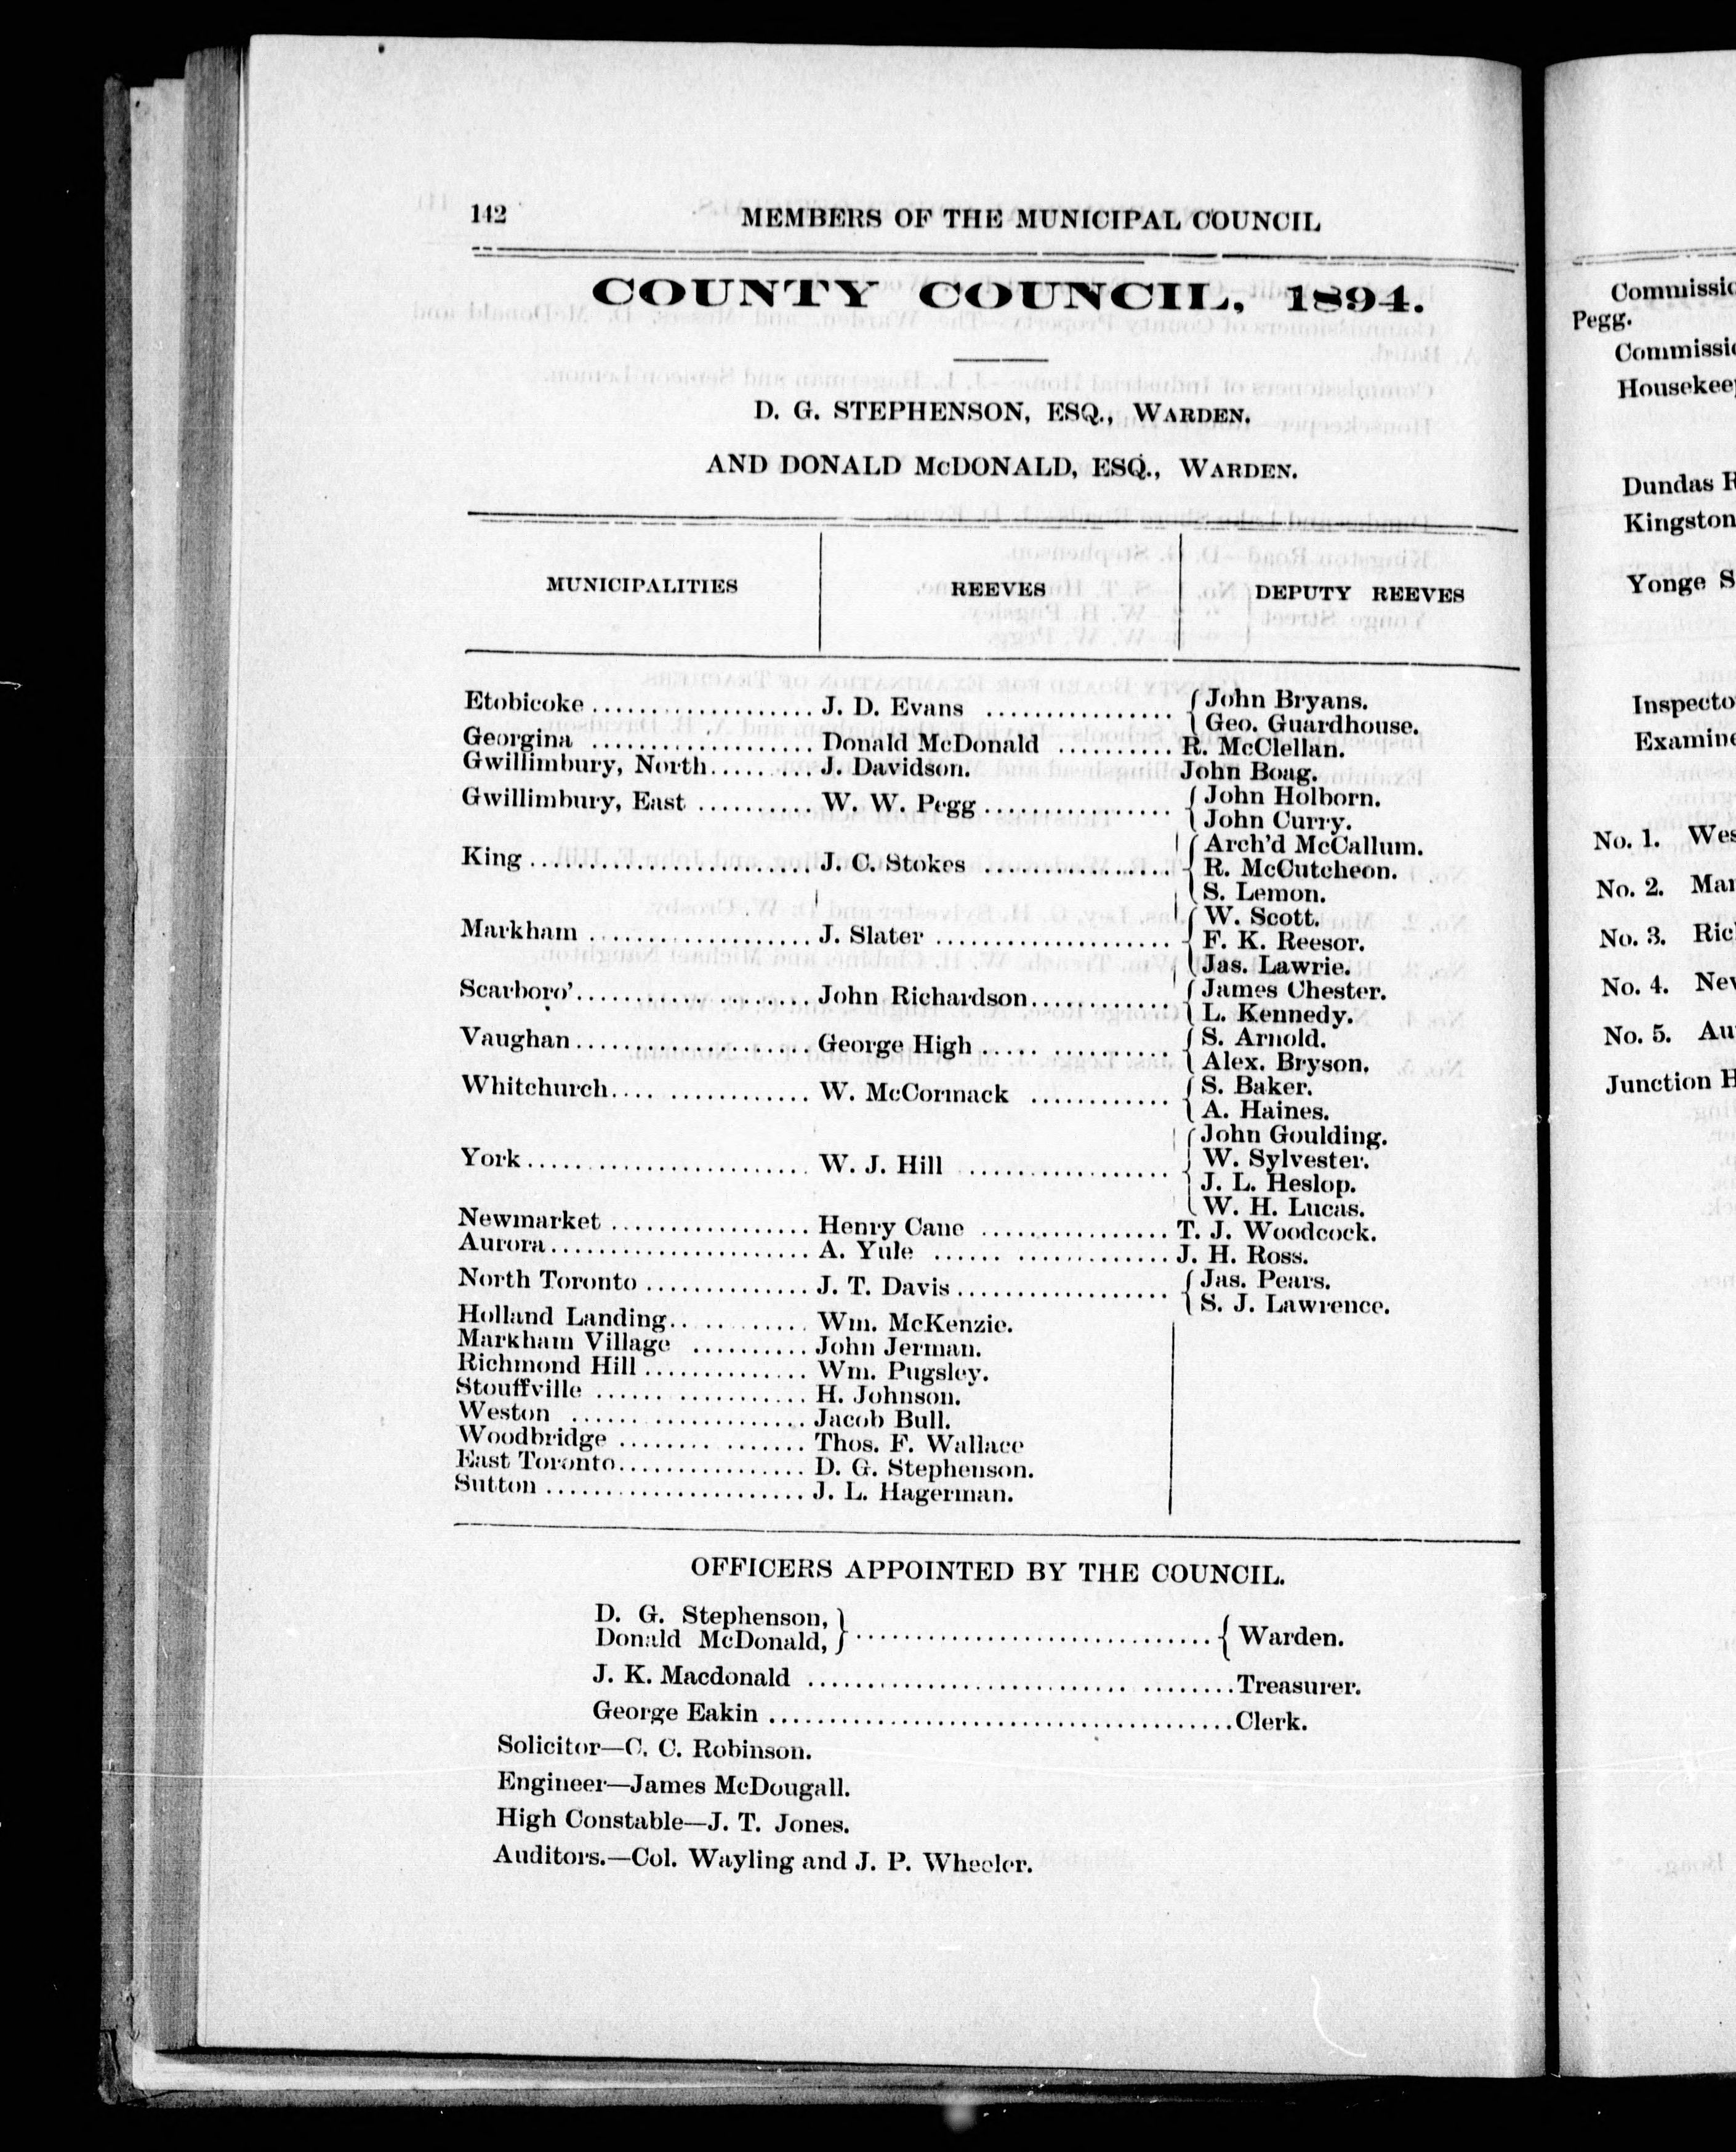 142 MEMBERS OF THE MUNICIPAL COUNCIL
COUNTY COUNCIL, 1894.
D. G. STEPHENSON, ESQ., WARDEN.
AND DONALD McDONALD, ESQ., WARDEN.
MUNICIPALITIES REEVES DEPUTY REEVES
Etobicoke ................... J. D. Evans ................ { John Bryans.
Geo. Guardhouse.
Georgina ................... Donald McDonald .......... R. McClellan.
Gwillimbury, North......... J. Davidson. John Boag.
Gwillimbury, East .......... W. W. Pegg ................ { John Holborn.
John Curry.
King ........................ J. C. Stokes ................ { Arch'd McCallum.
R. McCutcheon.
S. Lemon.
Markham ................... J. Slater .................... { W. Scott.
F. K. Reesor.
Jas. Lawrie.
Scarboro'.................... John Richardson............ { James Chester.
L. Kennedy.
Vaughan .................... George High ............... { S. Arnold.
Alex. Bryson.
Whitchurch................ W. McCormack ............ { S. Baker.
A. Haines.
York ........................ W. J. Hill ................. { John Goulding.
W. Sylvester.
J. L. Heslop.
W. H. Lucas.
Newmarket ................. Henry Cane ................ T. J. Woodcock.
Aurora...................... A. Yule ................... J. H. Ross.
North Toronto .............. J. T. Davis .................. { Jas. Pears.
S. J. Lawrence.
Holland Landing............ Wm. McKenzie.
Markham Village .......... John Jerman.
Richmond Hill .............. Wm. Pugsley.
Stouffville .................. H. Johnson.
Weston .................... Jacob Bull.
Woodbridge ................ Thos. F. Wallace
East Toronto................ D. G. Stephenson.
Sutton ...................... J. L. Hagerman.
OFFICERS APPOINTED BY THE COUNCIL.
D. G. Stephenson,
Donald McDonald, } .............................. { Warden.
J. K. Macdonald ................................... Treasurer.
George Eakin ...................................... Clerk.
Solicitor—C. C. Robinson.
Engineer—James McDougall.
High Constable—J. T. Jones.
Auditors.—Col. Wayling and J. P. Wheeler.
Pegg.
Dundas
Kingston
Yonge
No. 1.
No. 2.
No. 3.
No. 4.
No. 5.
Junction